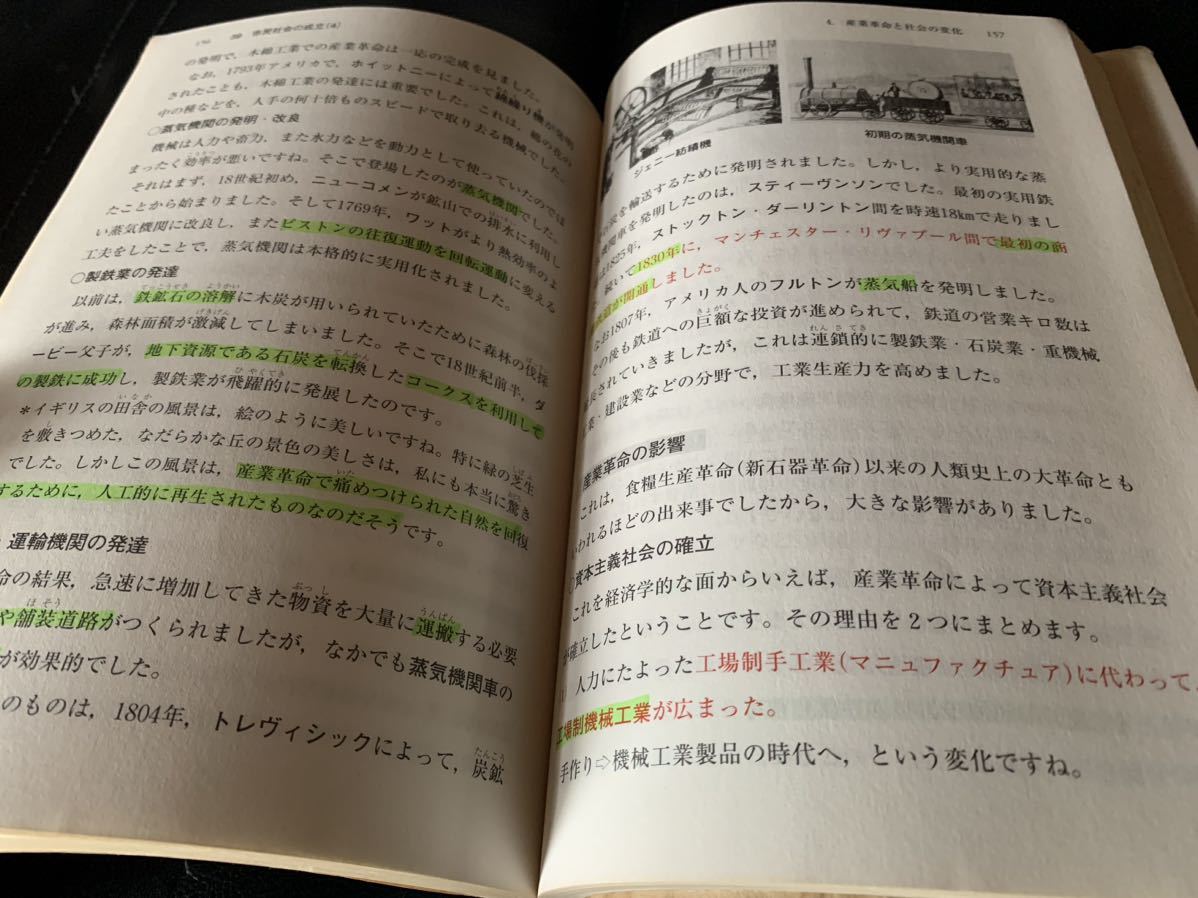 156 39 市民社会の成立(4)
の発明で，木綿工業での産業革命は一応の完成を見ました。
なお，1793年アメリカで，ホイットニーによって綿繰り機が発明
されたことも，木綿工業の発達には重要でした。これは，綿の花の
中の種などを，人手の何十倍ものスピードで取り去る機械でした。
○蒸気機関の発明・改良
機械は人力や畜力，また水力などを動力として使っていたのでは
まったく効率が悪いですね。そこで登場したのが蒸気機関でした。
それはまず，18世紀初め，ニューコメンが鉱山での排水に利用し
たことから始まりました。そして1769年，ワットがより熱効率のよ
い蒸気機関に改良し，またピストンの往復運動を回転運動に変える
工夫をしたことで，蒸気機関は本格的に実用化されました。
○製鉄業の発達
以前は，鉄鉱石の溶解に木炭が用いられていたために森林の伐採
が進み，森林面積が激減してしまいました。そこで18世紀前半，ダ
ービー父子が，地下資源である石炭を転換したコークスを利用して
の製鉄に成功し，製鉄業が飛躍的に発展したのです。
＊イギリスの田舎の風景は，絵のように美しいですね。特に緑の芝生
を敷きつめた，なだらかな丘の景色の美しさは，私にも本当に驚き
でした。しかしこの風景は，産業革命で痛めつけられた自然を回復
するために，人工的に再生されたものなのだそうです。
運輸機関の発達
命の結果，急速に増加してきた物資を大量に運搬する必要
や舗装道路がつくられましたが，なかでも蒸気機関車の
が効果的でした。
のものは，1804年，トレヴィシックによって，炭鉱
4. 産業革命と社会の変化 157
ジェニー紡績機
初期の蒸気機関車
の石炭を輸送するために発明されました。しかし，より実用的な蒸
機関車を発明したのは，スティーヴンソンでした。最初の実用鉄
は1825年，ストックトン・ダーリントン間を時速18kmで走りまし
，続いて1830年に，マンチェスター・リヴァプール間で最初の商
鉄道が開通しました。
なお1807年，アメリカ人のフルトンが蒸気船を発明しました。
その後も鉄道への巨額な投資が進められて，鉄道の営業キロ数は
長されていきましたが，これは連鎖的に製鉄業・石炭業・重機械
業・建設業などの分野で，工業生産力を高めました。
産業革命の影響
これは，食糧生産革命(新石器革命)以来の人類史上の大革命とも
いわれるほどの出来事でしたから，大きな影響がありました。
○資本主義社会の確立
これを経済学的な面からいえば，産業革命によって資本主義社会
が確立したということです。その理由を２つにまとめます。
人力にたよった工場制手工業(マニュファクチュア)に代わって，
工場制機械工業が広まった。
手作り⇨機械工業製品の時代へ，という変化ですね。